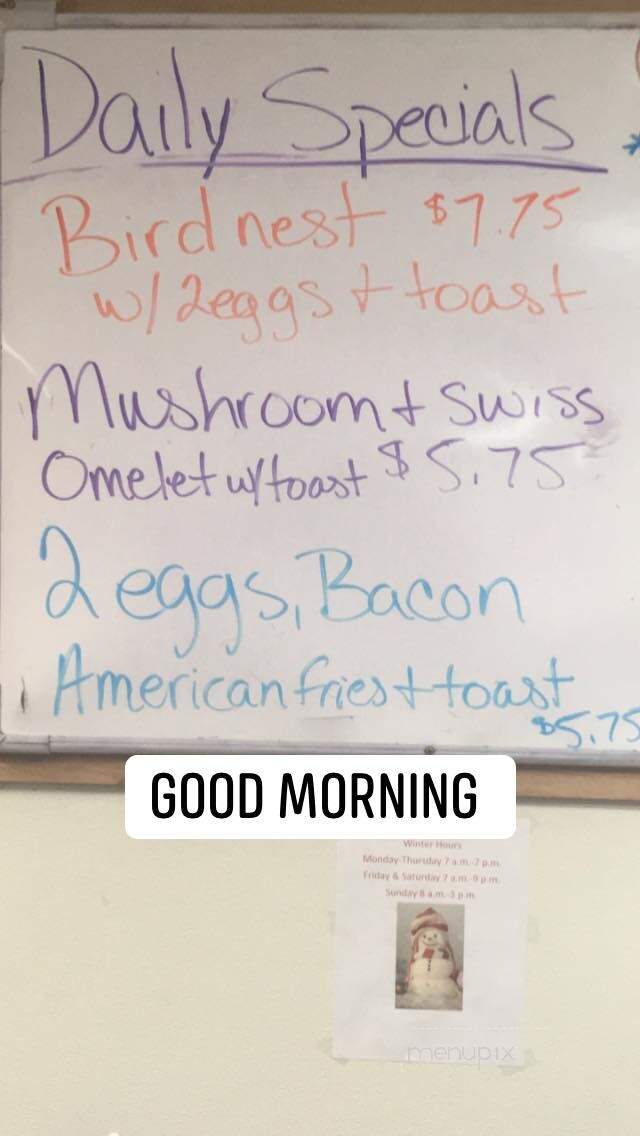 Daily Specials
Bird nest $7.75
w/2eggs + toast
Mushroom + Swiss
Omelet w/toast $5.75
2 eggs, Bacon
American fries + toast
$5.75
GOOD MORNING
Winter Hours
Monday-Thursday 7 a.m.-7 p.m.
Friday & Saturday 7 a.m.-9 p.m.
Sunday 8 a.m.-3 p.m.
menupix